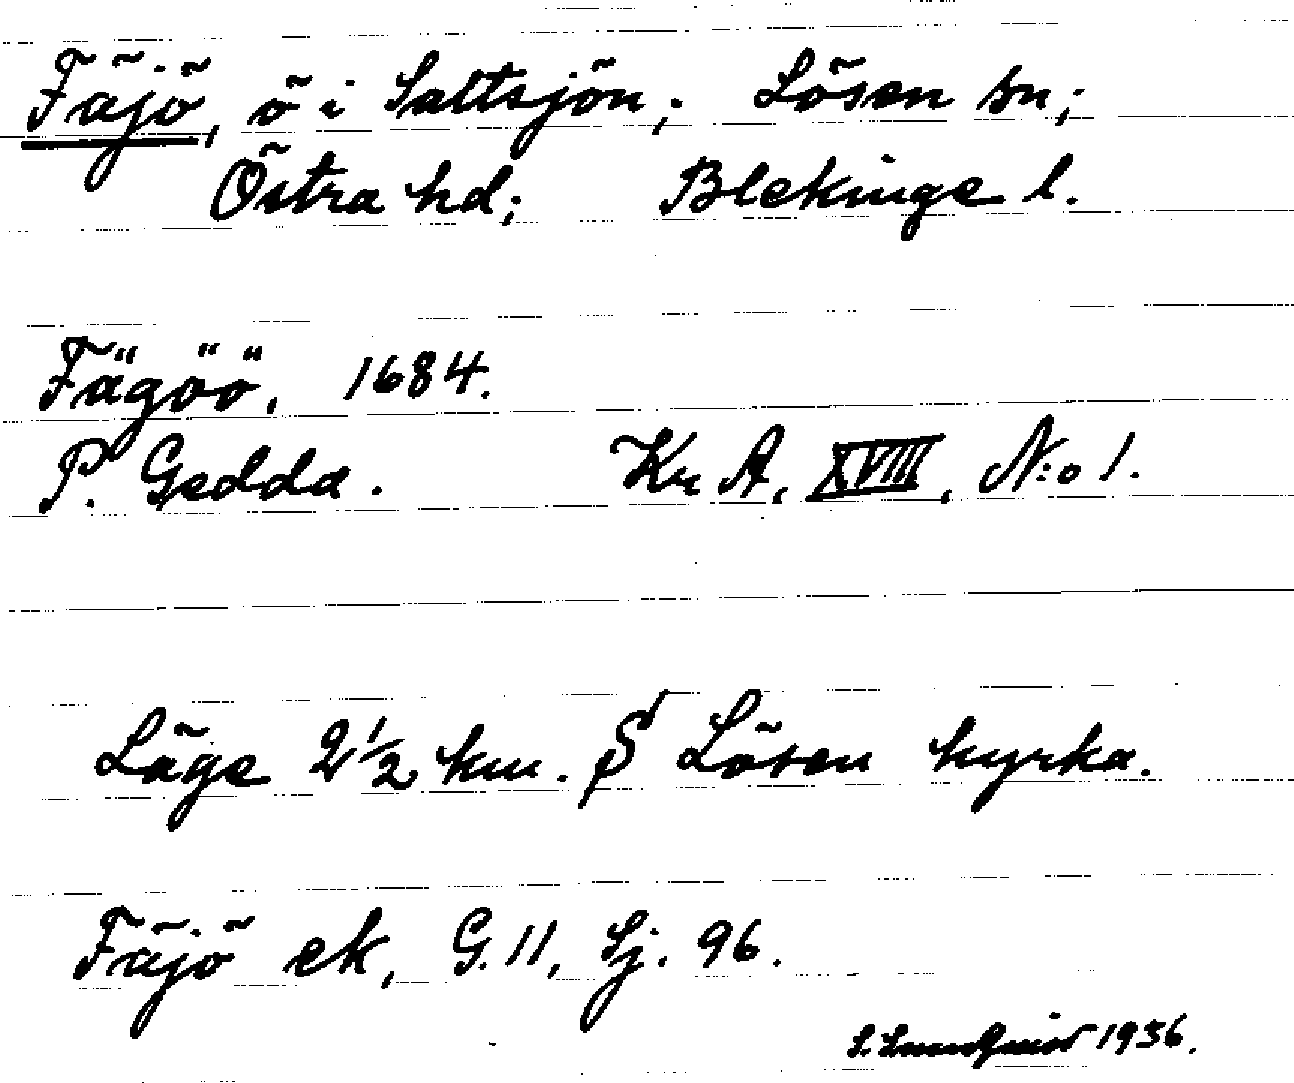 Fäjö, ö i Saltsjön; Lösen sn;
Östra hd; Blekinge l.
Fägöö, 1684.
P. Gedda. Kr A, XVIII, N:o 1.
Läge 2½ km. S Lösen kyrka.
Fäjö ek, G. 11, Sj. 96.
1936.